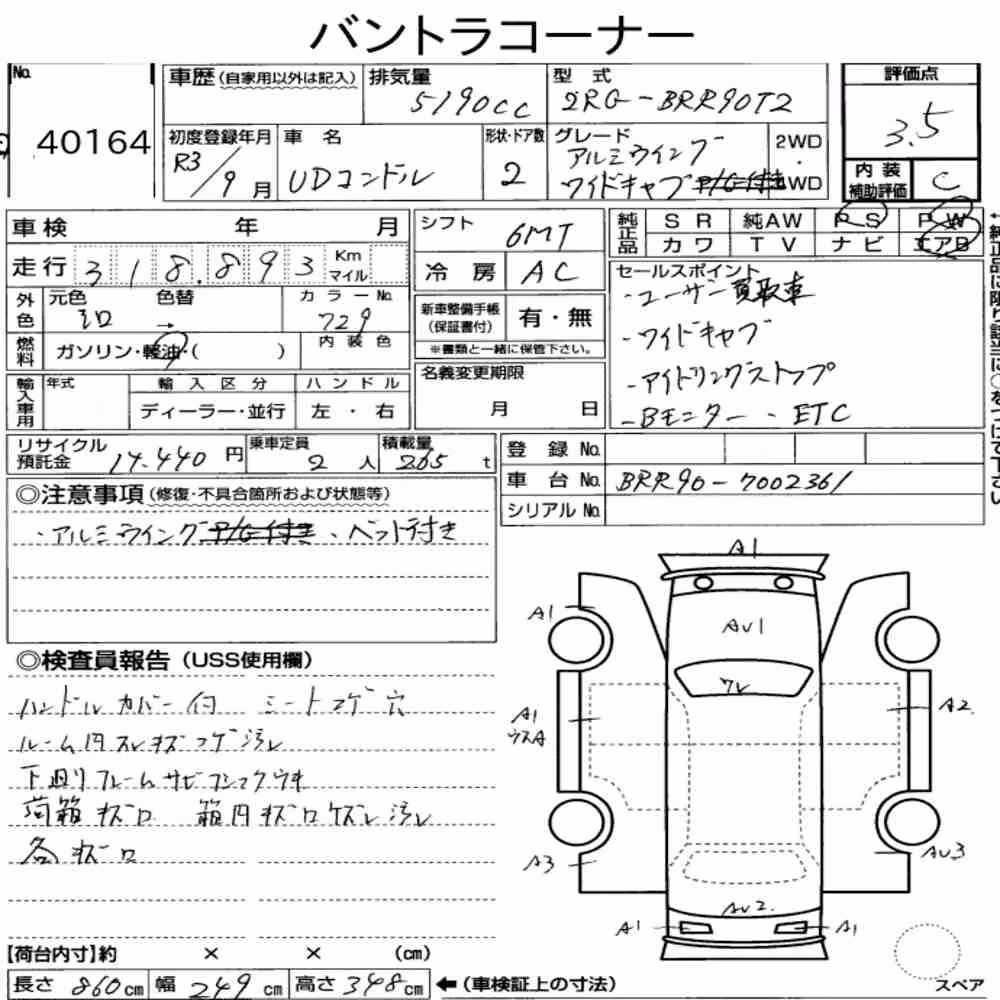 バントラコーナー
No. 40164
車歴 (自家用以外は記入)
排気量 5190cc
型式 2RG-BRR90T2
評価点 3.5
初度登録年月 R3/9月
車名 UDコンドル
形状・ドア数 2
グレード アルミウイング ワイドキャブ
2WD・4WD
内装補助評価 C
車検 年 月
シフト 6MT
純正品 SR 純AW PS PW
カワ TV ナビ エアB
走行 318.893 Km マイル
冷房 AC
セールスポイント
・ユーザー買取車
・ワイドキャブ
・アイドリングストップ
・Bモニター ・ETC
外色 元色 色替 カラーNo. 729
燃料 ガソリン・軽油・( ) 内装色
新車整備手帳(保証書付) 有・無
※書類と一緒に保管下さい。
輸入車用 年式 輸入区分 ハンドル
ディーラー・並行 左・右
名義変更期限 月 日
リサイクル預託金 14.440円
乗車定員 2人
積載量 265t
登録No.
車台No. BRR90-7002361
シリアルNo.
◎注意事項 (修復・不具合箇所および状態等)
・アルミウイング ・ベット付き
◎検査員報告 (USS使用欄)
ハンドルカバー付 シートコゲ穴
ルーム内スレキズコゲ汚レ
下廻りフレームサビ
荷箱キズ凹 箱内キズ凹 汚レ
各キズ凹
A1
A1
AV1
ワレ
A1
A2
A3
AV3
AV2
A1
A1
スペア
【荷台内寸】約 × × (cm)
長さ860cm 幅249cm 高さ348cm ←(車検証上の寸法)